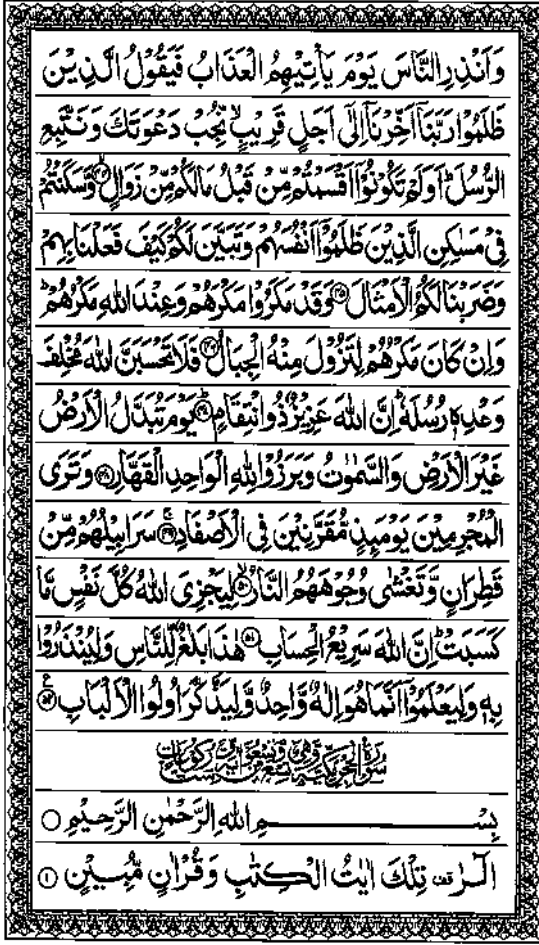 وَاَنْذِرِ النَّاسَ يَوْمَ يَاْتِيْهِمُ الْعَذَابُ فَيَقُوْلُ الَّذِيْنَ
ظَلَمُوْا رَبَّنَاۤ اَخِّرْنَاۤ اِلٰۤى اَجَلٍ قَرِيْبٍۙ نُّجِبْ دَعْوَتَكَ وَنَتَّبِعِ
الرُّسُلَؕ اَوَلَمْ تَكُوْنُوْۤا اَقْسَمْتُمْ مِّنْ قَبْلُ مَا لَكُمْ مِّنْ زَوَالٍۙ۝۴۴ وَّسَكَنْتُمْ
فِیْ مَسٰكِنِ الَّذِيْنَ ظَلَمُوْۤا اَنْفُسَهُمْ وَتَبَيَّنَ لَكُمْ كَيْفَ فَعَلْنَا بِهِمْ
وَضَرَبْنَا لَكُمُ الْاَمْثَالَ۝۴۵ وَقَدْ مَكَرُوْا مَكْرَهُمْ وَعِنْدَ اللّٰهِ مَكْرُهُمْؕ
وَاِنْ كَانَ مَكْرُهُمْ لِتَزُوْلَ مِنْهُ الْجِبَالُ۝۴۶ فَلَا تَحْسَبَنَّ اللّٰهَ مُخْلِفَ
وَعْدِهٖ رُسُلَهٗؕ اِنَّ اللّٰهَ عَزِيْزٌ ذُوانْتِقَامٍؕ۝۴۷ يَوْمَ تُبَدَّلُ الْاَرْضُ
غَيْرَ الْاَرْضِ وَالسَّمٰوٰتُ وَبَرَزُوْا لِلّٰهِ الْوَاحِدِ الْقَهَّارِ۝۴۸ وَتَرَى
الْمُجْرِمِيْنَ يَوْمَىِٕذٍ مُّقَرَّنِيْنَ فِی الْاَصْفَادِۚ۝۴۹ سَرَابِيْلُهُمْ مِّنْ
قَطِرَانٍ وَّتَغْشٰى وُجُوْهَهُمُ النَّارُۙ۝۵۰ لِيَجْزِیَ اللّٰهُ كُلَّ نَفْسٍ مَّا
كَسَبَتْؕ اِنَّ اللّٰهَ سَرِيْعُ الْحِسَابِ۝۵۱ هٰذَا بَلٰغٌ لِّلنَّاسِ وَلِيُنْذَرُوْا
بِهٖ وَلِيَعْلَمُوْۤا اَنَّمَا هُوَ اِلٰهٌ وَّاحِدٌ وَّلِيَذَّكَّرَ اُولُوا الْاَلْبَابِ۝۵۲
سُوْرَةُ الْحِجْرِ مَكِّيَّةٌ وَّهِیَ تِسْعٌ وَّتِسْعُوْنَ اٰيَةً وَّسِتُّ رُكُوْعَاتٍ
بِسْمِ اللّٰهِ الرَّحْمٰنِ الرَّحِيْمِ ۝
الٓرٰ قف تِلْكَ اٰيٰتُ الْكِتٰبِ وَقُرْاٰنٍ مُّبِيْنٍ ۝۱